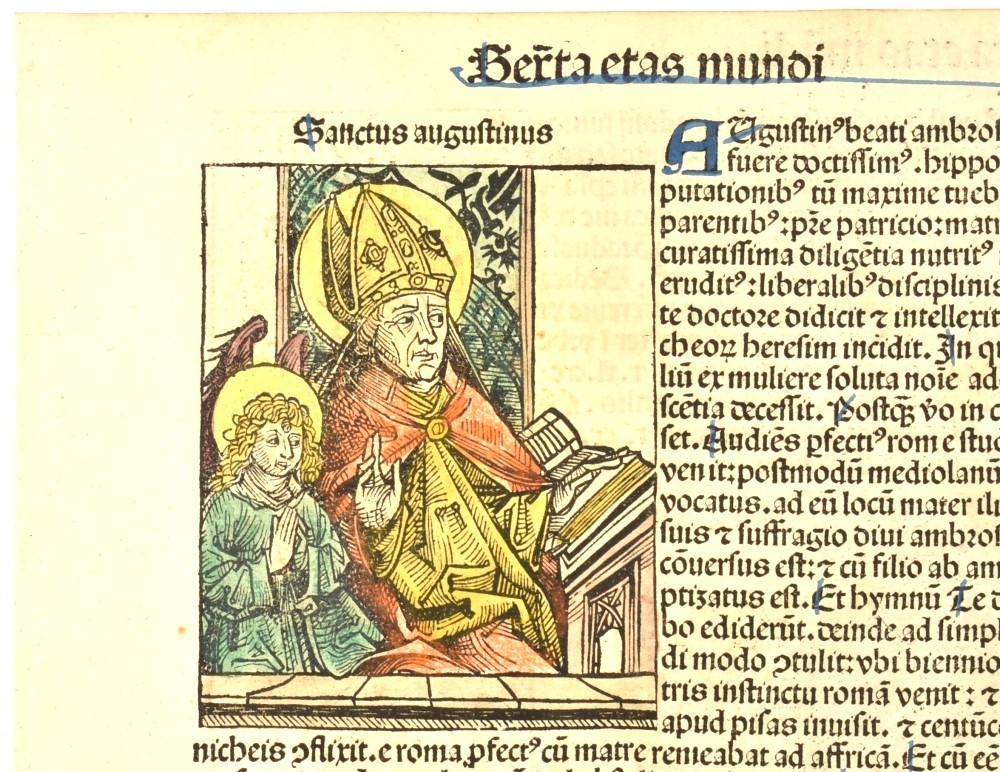 Sexta etas mundi
Sanctus augustinus
AUgustinꝰ beati ambroſ
fuere doctiſſimꝰ. hippo
putationibꝰ tū maxime tueb
parentibꝰ: pr̄e patricio: matr
curatiſſima diligētia nutritꝰ
eruditꝰ: liberalibꝰ diſciplinis
te doctore didicit ⁊ intellexit
cheoꝝ hereſim incidit. In qu
liū ex muliere ſoluta noīe ad
ſcētia deceſſit. Poſtq̄ꝫ v̄o in c
ſet. Audiēs ꝓfectiꝰ rom e ſtuc
venit: poſtmodū mediolanū
vocatus. ad eū locū mater illi
ſuis ⁊ ſuffragio diui ambroſ
cōuerſus eſt: ⁊ cū filio ab am
ptizatus eſt. Et hymnū Te d
bo ediderūt. deinde ad ſimpl
di modo ꝯtulit: vbi biennio
tris inſtinctu romā venit: ⁊
apud piſas inuiſit. ⁊ centūc
nicheis ꝯflixit. e roma ꝓfectꝰ cū matre remeabat ad affricā. Et cū eē